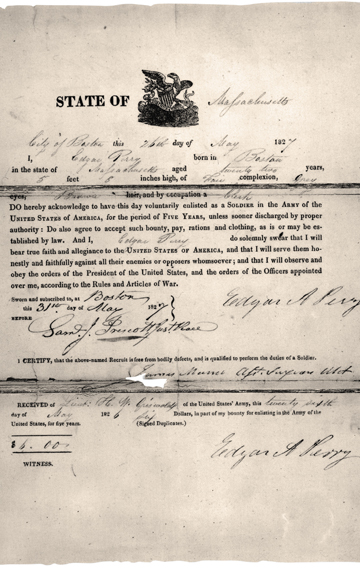 STATE OF Massachusetts
City of Boston this 26th day of May 1827
I, Edgar Perry born in Boston
in the state of Massachusetts aged twenty two years,
5 feet 8 inches high, of fair complexion, Grey
eyes, Brown hair, and by occupation a Clerk
DO hereby acknowledge to have this day voluntarily enlisted as a SOLDIER in the ARMY OF THE
UNITED STATES OF AMERICA, for the period of FIVE YEARS, unless sooner discharged by proper
authority: Do also agree to accept such bounty, pay, rations and clothing, as is or may be es-
tablished by law. And I, Edgar Perry do solemnly swear that I will
bear true faith and allegiance to the UNITED STATES OF AMERICA, and that I will serve them ho-
nestly and faithfully against all their enemies or opposers whomsoever; and that I will observe and
obey the orders of the President of the United States, and the orders of the Officers appointed
over me, according to the Rules and Articles of War.
Sworn and subscribed to, at Boston
this 31st day of May 1827
BEFORE
Edgar A Perry
I CERTIFY, that the above-named Recruit is free from bodily defects, and is qualified to perform the duties of a Soldier.
RECEIVED of Lieut. H. W. of the United States' Army, this twenty sixth
day of May 182 Dollars, in part of my bounty for enlisting in the Army of the
United States, for five years. (Signed Duplicates.)
$ 6.00
Edgar A Perry
WITNESS.